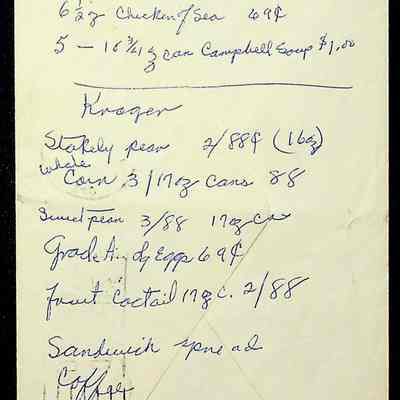 6 1/2 oz Chicken of Sea 69¢
5 - 10 3/4 oz can Campbell Soup $1.00
Kroger
Stokely pear 2/88¢ (16oz)
whole
Corn 3/17oz cans 88
Sweet pean 3/88 17oz can
Grade A dz Eggs 69¢
fruit Coctail 17oz c. 2/88
Sandwich spread
Coffee